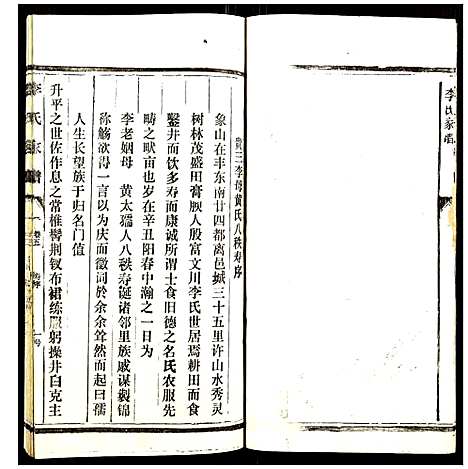 李氏家譜
三李母黃氏八秩壽序
象山在丰东南廿四都離邑城三十五里许山水秀灵
树林茂盛田膏腴人殷富文川李氏世居焉耕田而食
鑿井而饮多寿而康诚所谓士食旧德之名氏农服先
畴之畎亩也岁在辛丑阳春中瀚之一日为
李老姻母 黄太孺人八秩寿诞诸邻里族戚谋製锦
称觞欲得一言以为庆而徵词於余余耸然而起曰孺
人生长望族于归名门值
升平之世佐作息之常椎髻荆钗布裙练服躬操井臼克主
李氏家譜
卷五
寿序
一号